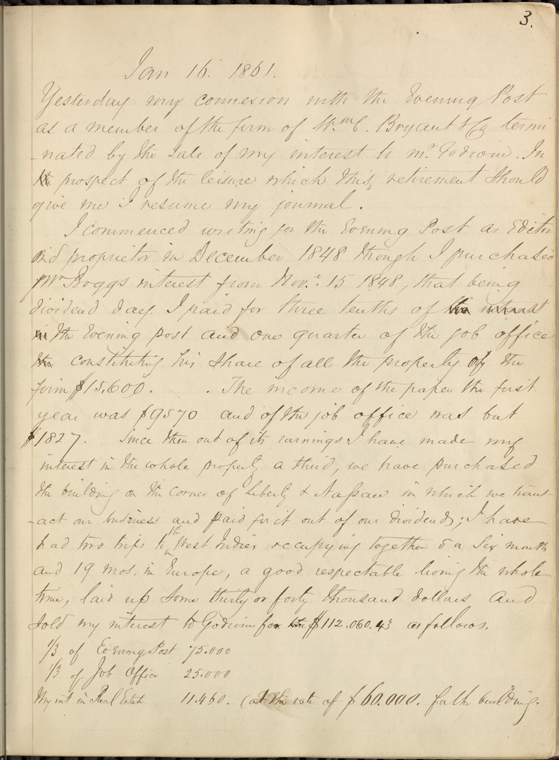 3.
Jan 16. 1861.
Yesterday my connexion with the Evening Post
as a member of the firm of Wm C. Bryant & Co termi
-nated by the sale of my interest to Mr Godwin. In
prospect of the leisure which this retirement should
give me I resume my journal.
I commenced writing for the Evening Post as Editor
and proprietor in December 1848 though I purchased
Mr Boggs interest from Nov. 15 1848, that being
dividend day. I paid for three tenths of
the Evening Post and one quarter of the job office
constituting his share of all the property of the
firm $15.600. . The income of the paper the first
year was $9570 and of the job office was but
$1827. Since then out of its earnings I have made my
interest in the whole property a third, we have purchased
the building on the corner of Liberty & Nassau in which we trans-
-act our business and paid for it out of our dividends; I have
had two trips to the West Indies occupying together 5 or six months
and 19 mos. in Europe, a good respectable living the whole
time, laid up some thirty or forty thousand dollars and
sold my interest to Godwin for $112.060.43 as follows.
1/3 of Evening Post 75.000
1/3 of Job Office 25.000
My int in Real Estate 11.460. (at the rate of $60.000. for the building.